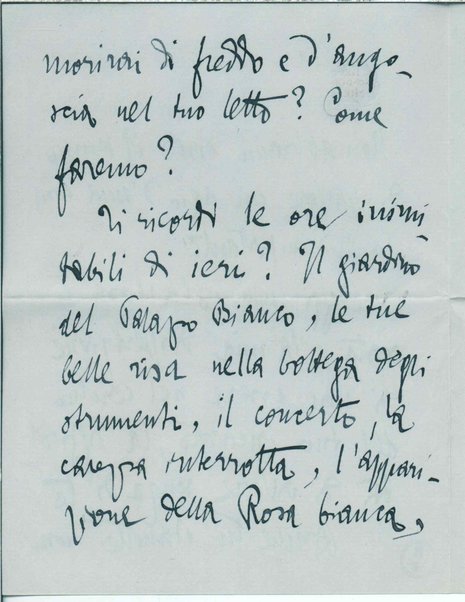 morirai di freddo e d'ango-
scia nel tuo letto? Come
faremo?
Ti ricordi le ore inimi-
tabili di ieri? Il giardino
del Palazzo Bianco, le tue
belle risa nella bottega degli
strumenti, il concerto, la
carezza interrotta, l'appari-
zione della Rosa bianca,